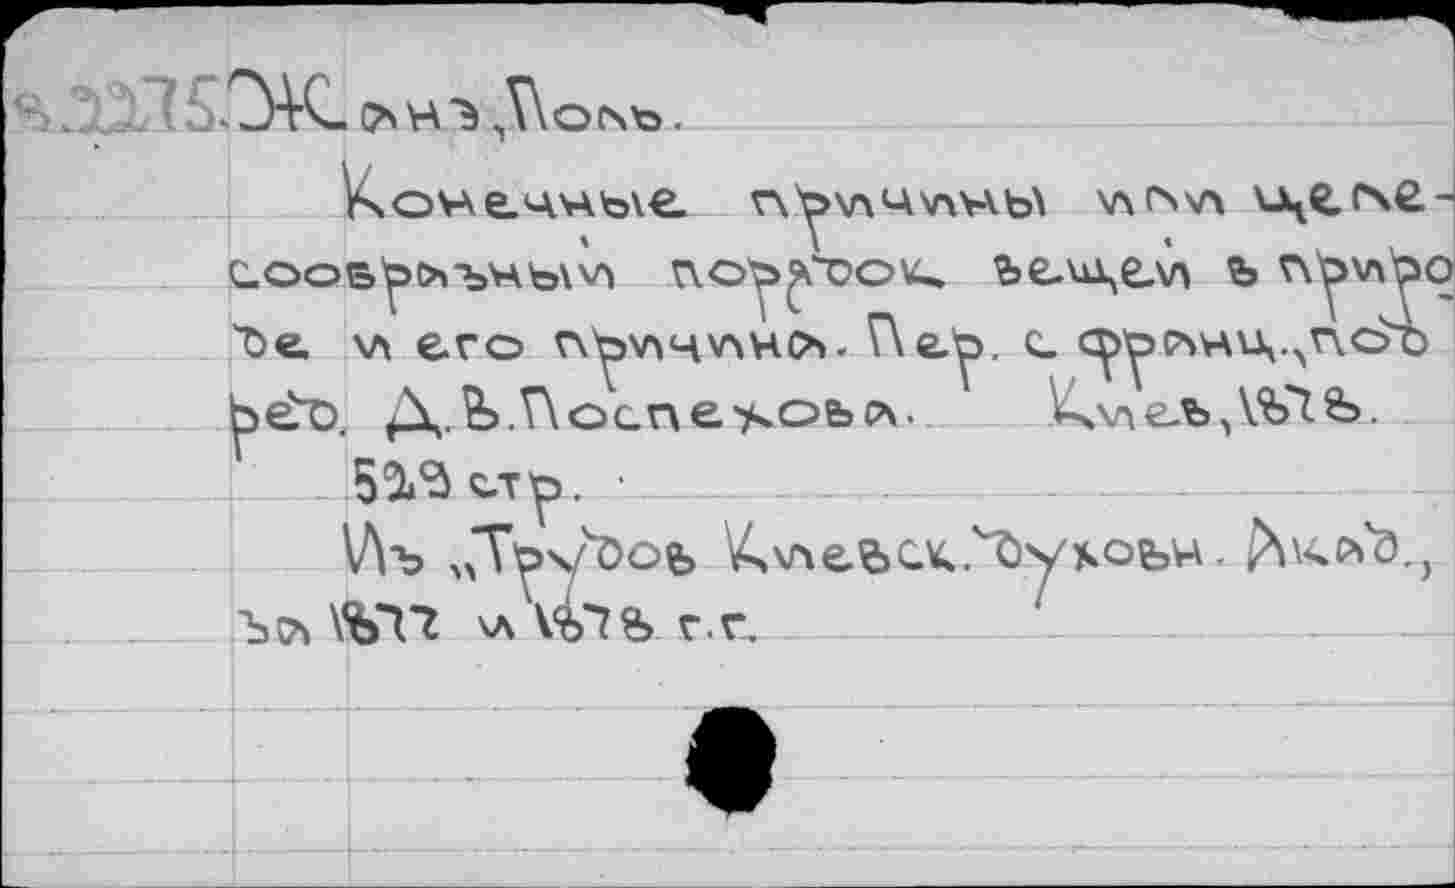 Жанэ, Поль.
Конечные причины или целе-
сообразный порядок вещей в приро
де и его причина. Пер. с франц., под
ред. Д.В.Поспехова. Киев, 1878.
529 стр.
Из „Трудов Киевск. духовн. Акад.,
за 1877 и 1878 г.г.